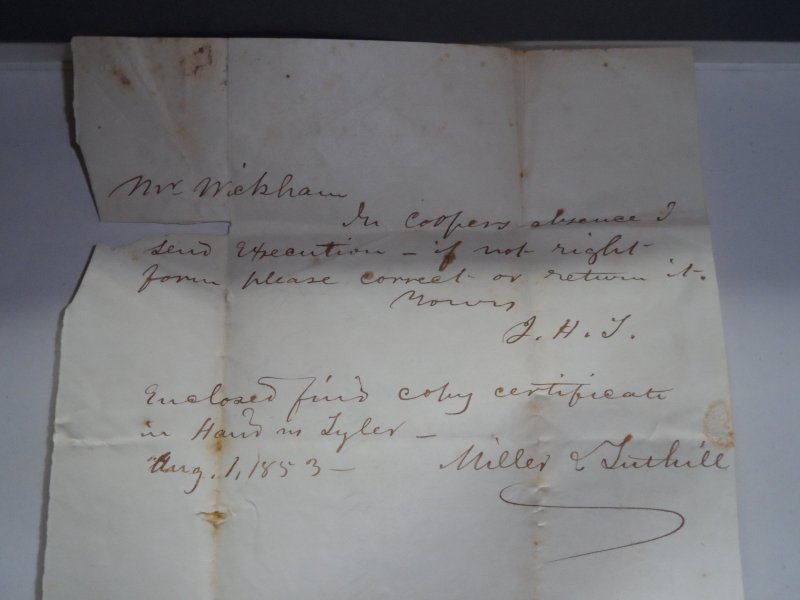 Mr Wickham
In Coopers absence I
send Execution - if not right
form please correct or return it.
Yours
J. H. T.
Enclosed find copy certificate
in Hand vs Tyler -
Aug. 1, 1853 - Miller & Tuthill